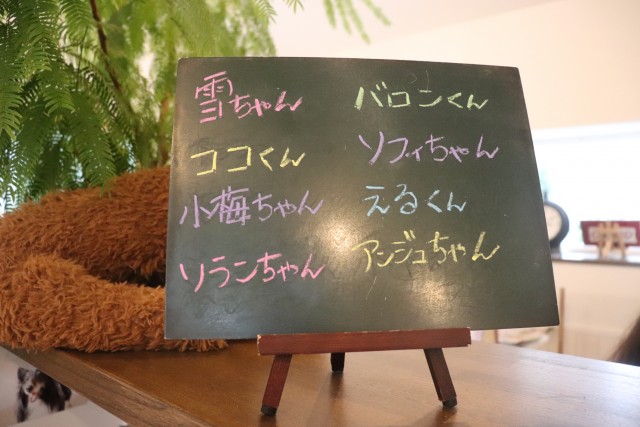 雪ちゃん
ココくん
小梅ちゃん
ソランちゃん
バロンくん
ソフィちゃん
えるくん
アンジュちゃん